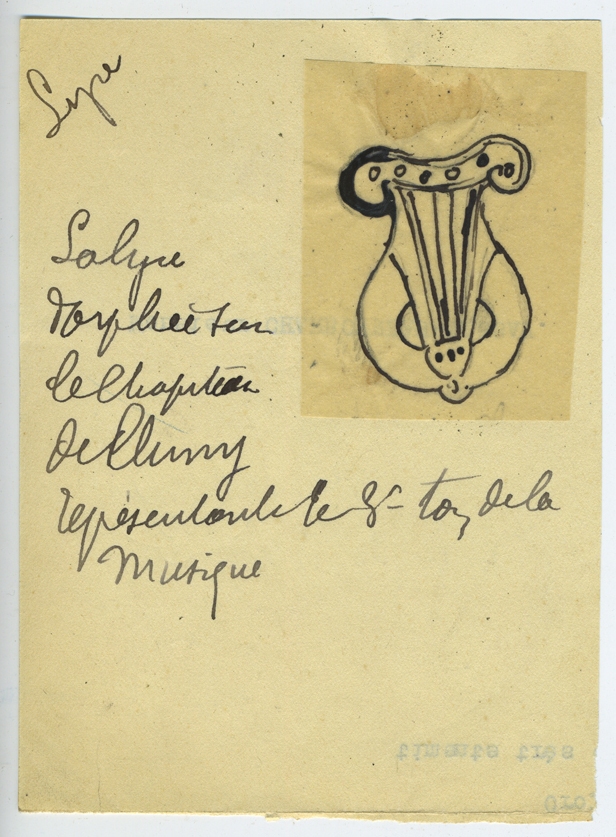 Lyre
La lyre
d'orphée sur
le Chapiteau
de Cluny
représentant le 3e ton de la
Musique